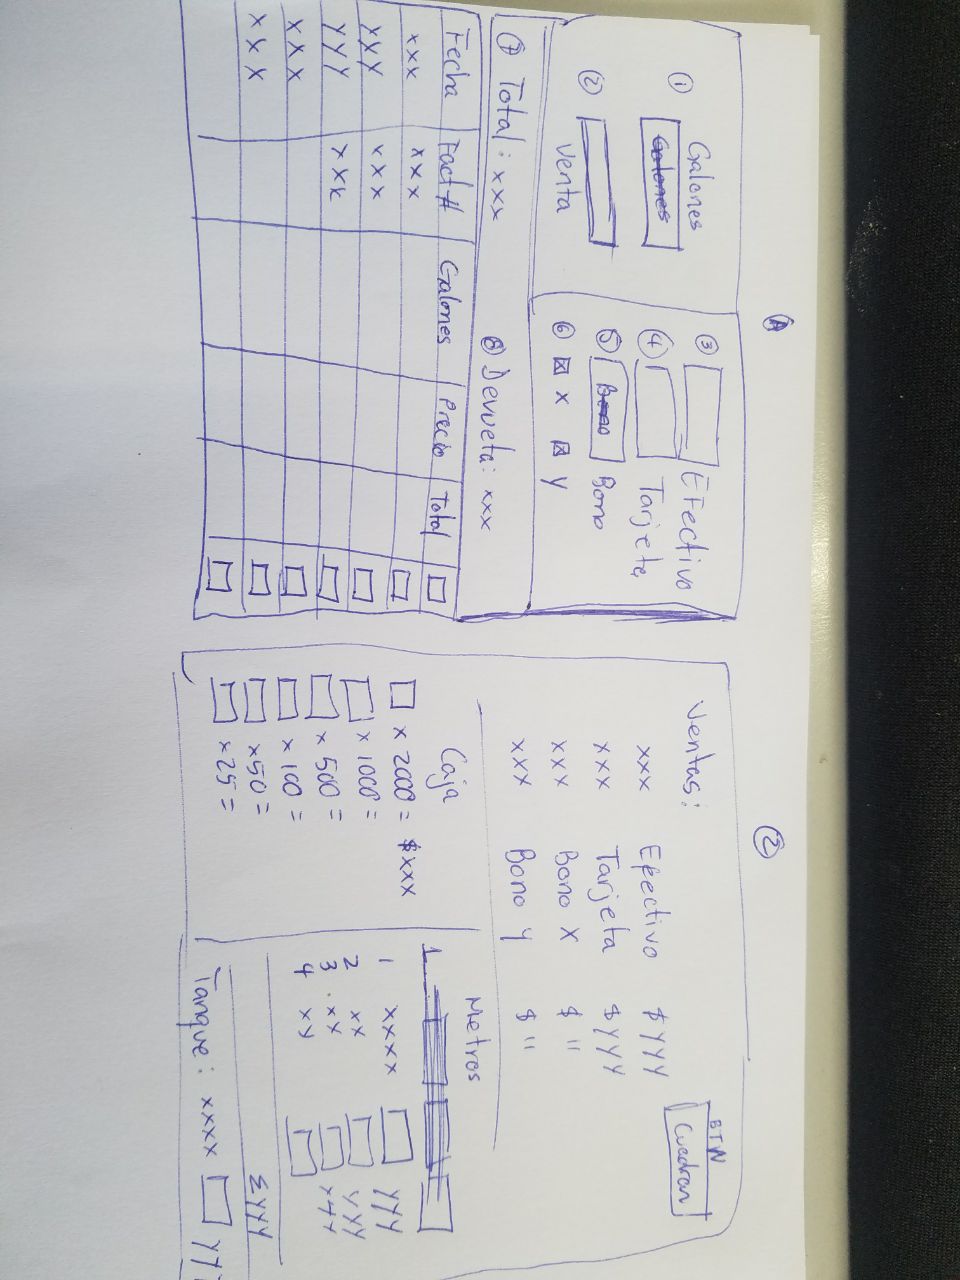 A
① Galones
② Venta
③ Efectivo
④ Tarjeta
⑤ Bono
⑥ ☒ X ☒ Y
⑦ Total: xxx ⑧ Devueta: xxx
Fecha Fact# Galones Precio Total
xxx xxx
yyy xxx
yyy xxx
xxx
xxx
②
Ventas:
BTN
Cuadrar
xxx Efectivo $ yyy
xxx Tarjeta $ yyy
xxx Bono X $ "
xxx Bono y $ "
Caja
x 2000 = $xxx
x 1000 =
x 500 =
x 100 =
x50 =
x25 =
Metros
1 xxxx yyy
2 xx yyy
3 xy
4 xy
Σ yyy
Tanque: xxxx yyy